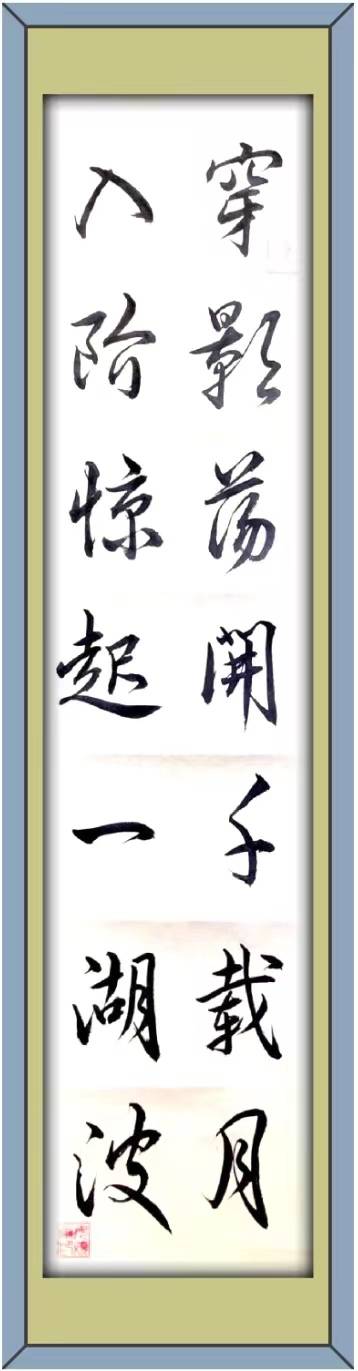 穿影荡開千载月
入阶惊起一湖波